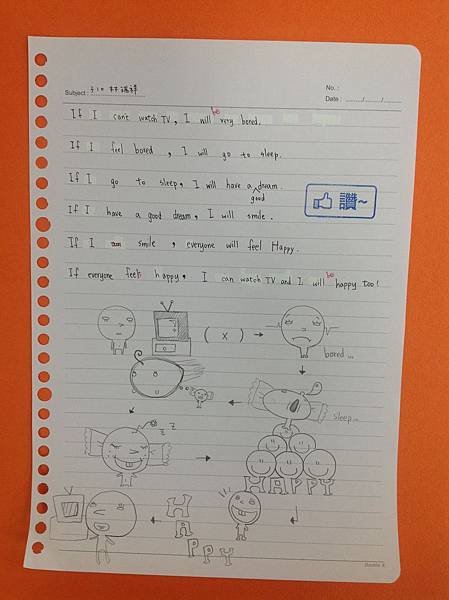 No.:
Subject: 310 林瑞祥
Date: / /
If I can't watch TV, I will be very bored.
If I feel bored, I will go to sleep.
If I go to sleep, I will have a good dream.
讚~
If I have a good dream, I will smile.
If I smile, everyone will feel Happy.
If everyone feels happy, I can watch TV and I will be happy too!
(x)
bored...
sleep...
z z
HAPPY
HAPPY
Double A